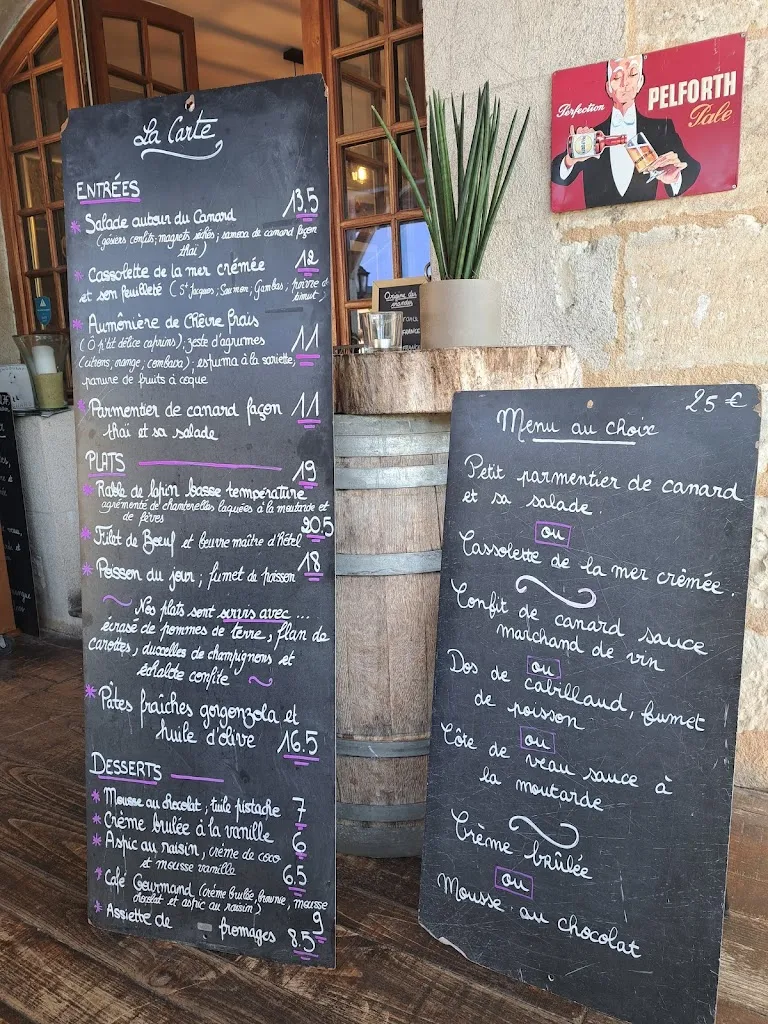 La Carte
ENTRÉES
Salade autour du Canard 13,5
(gésiers confits, magrets séchés, samosa de canard façon
thaï)
Cassolette de la mer crémée 12
et son feuilleté (St Jacques, Saumon, Gambas, poivre de
timut)
Aumônière de Chèvre frais
(Ô p'tit délice caprins), zeste d'agrumes 11
(citrons, orange, combava), espuma à la sariette,
panure de fruits à coque
Parmentier de canard façon 11
thaï et sa salade
PLATS
Rable de lapin basse température 19
agrémenté de chanterelles laquées à la moutarde et
de fèves
Filet de Boeuf et beurre maître d'hôtel 20.5
Poisson du jour, fumet de poisson 18
Nos plats sont servis avec ...
écrasé de pommes de terre, flan de
carottes, duxelles de champignons et
échalote confite
Pâtes fraîches gorgonzola et
huile d'olive 16.5
DESSERTS
Mousse au chocolat, tuile pistache 7
Crème brulée à la vanille 6
Aspic au raisin, crème de coco
et mousse vanille 6.5
Café Gourmand (crème brulée, brownie, mousse
chocolat et aspic au raisin) 9
Assiette de fromages 8.5
Origine des
viandes
FRANCE
Perfection
PELFORTH
Pale
25 €
Menu au choix
Petit parmentier de canard
et sa salade
ou
Cassolette de la mer crémée
Confit de canard sauce
marchand de vin
ou
Dos de cabillaud, fumet
de poisson
ou
Côte de veau sauce à
la moutarde
Crème brûlée
ou
Mousse au chocolat